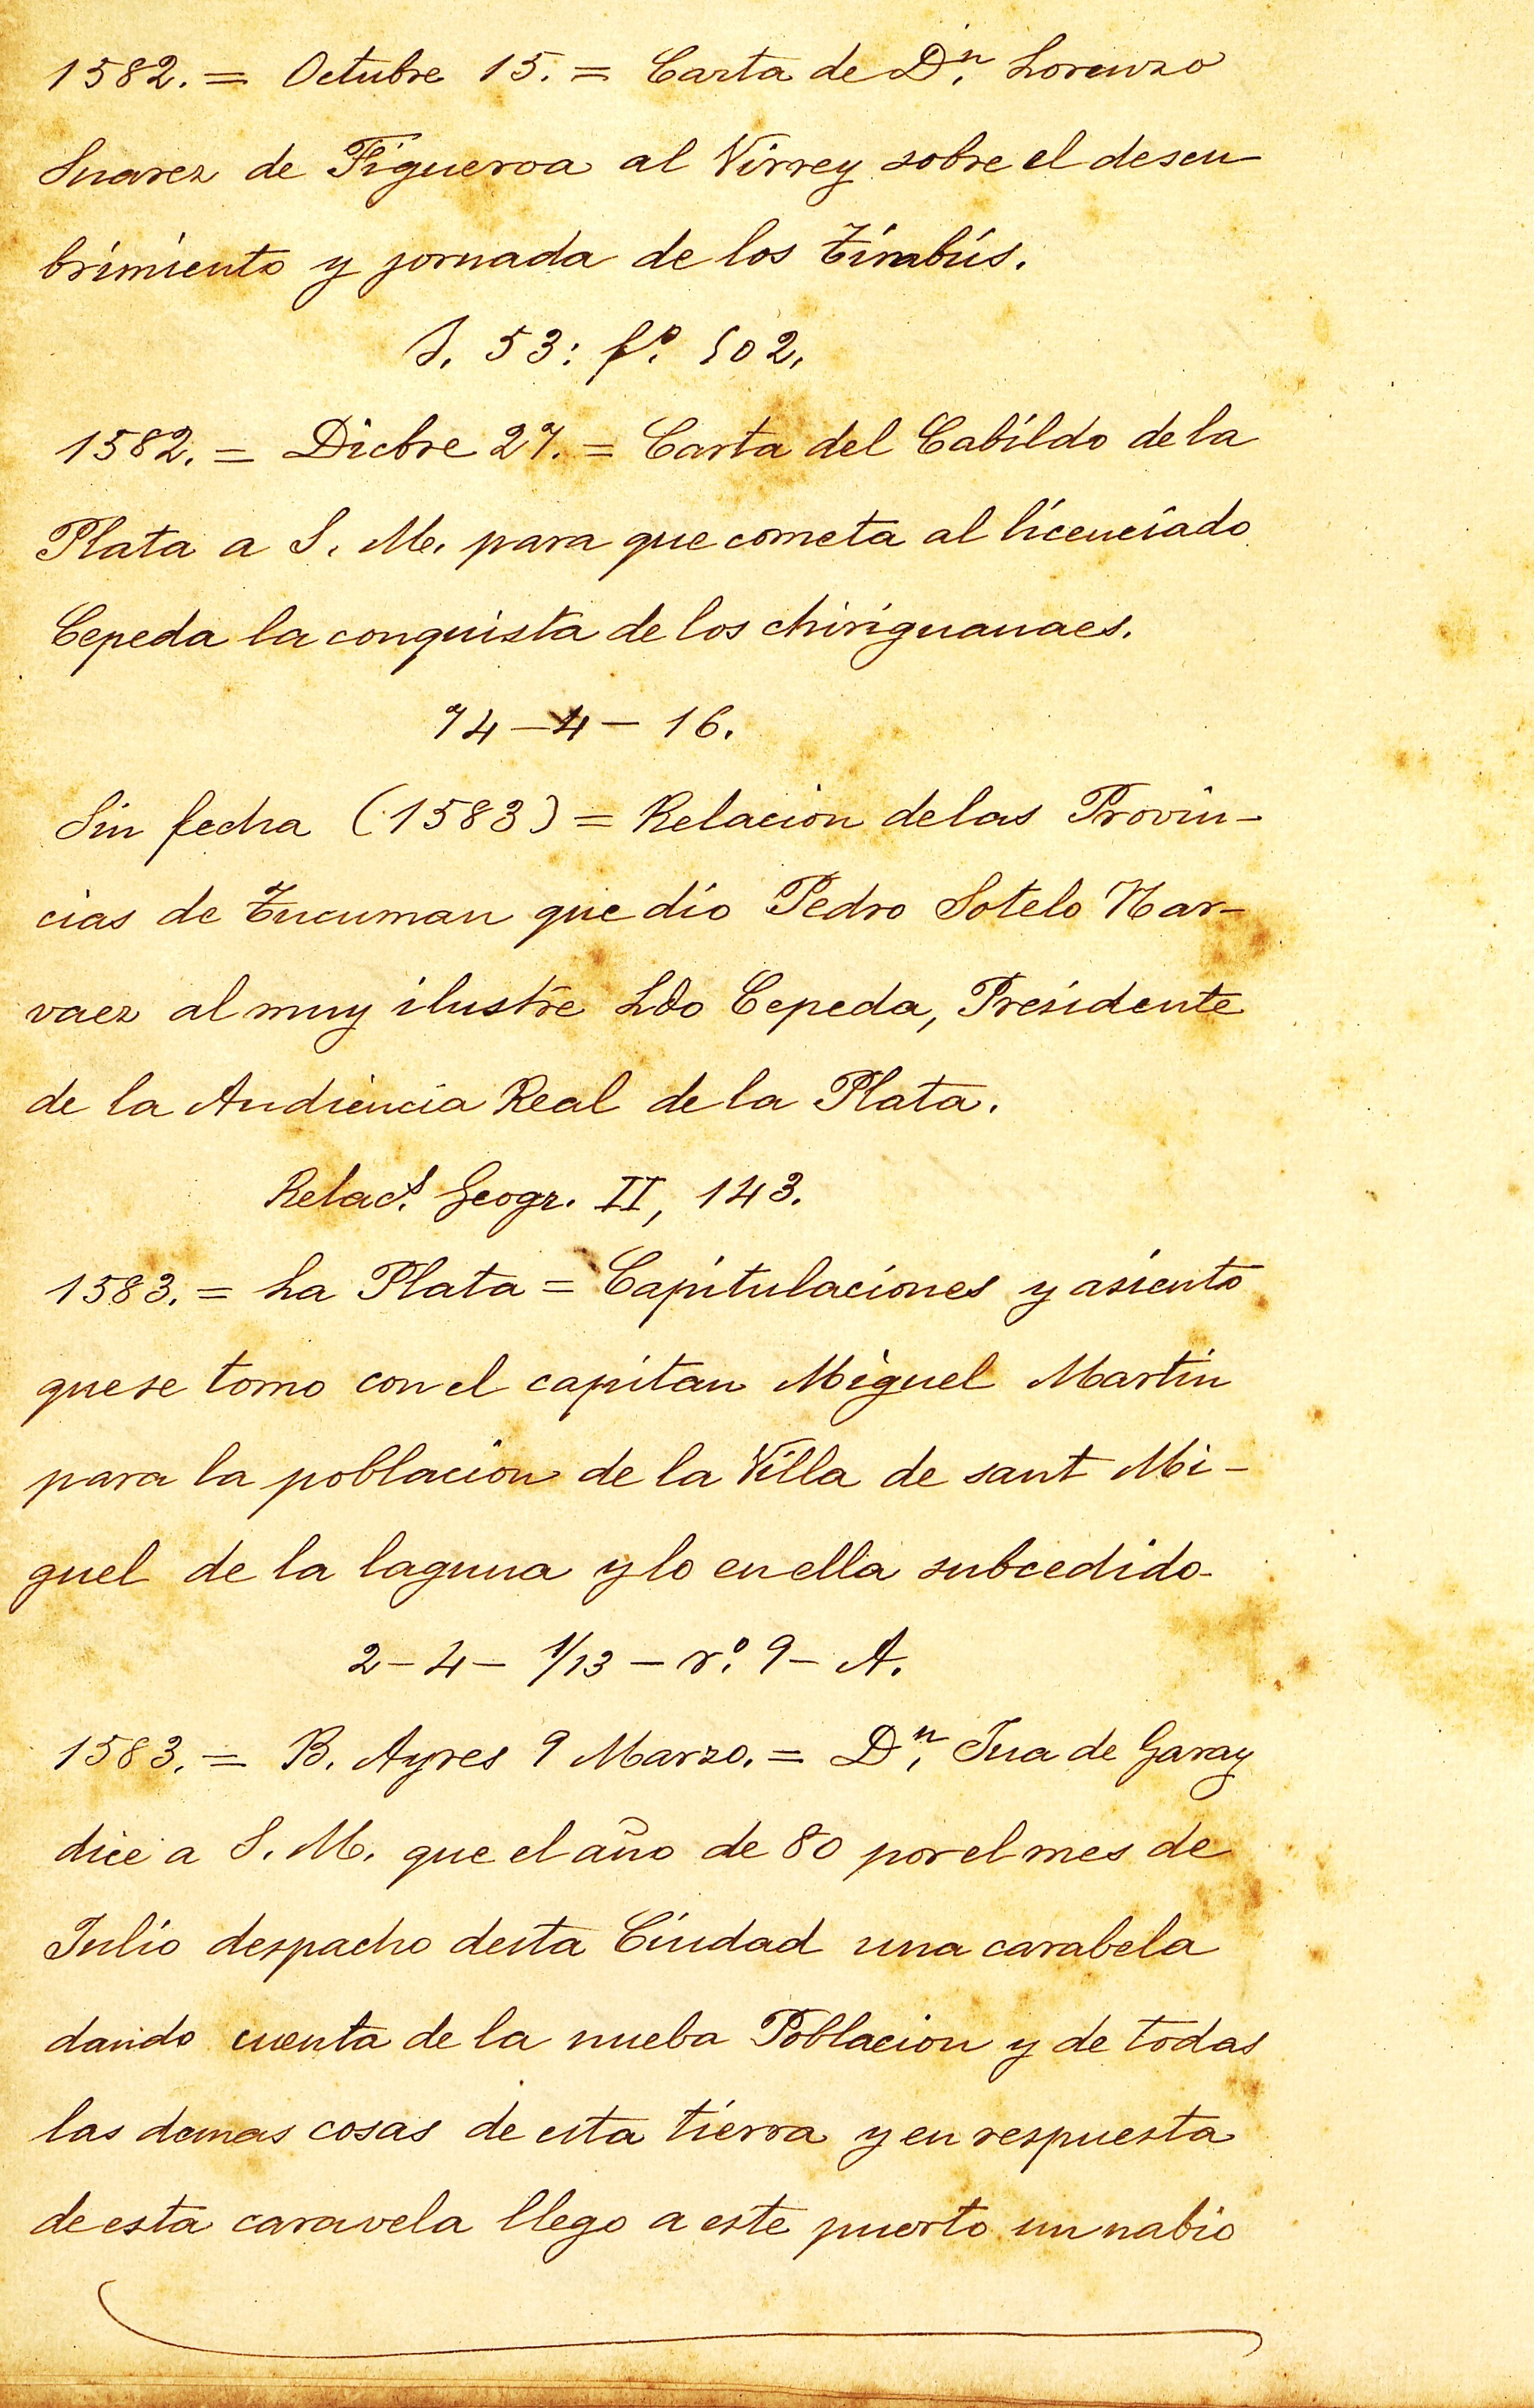 1582. = Octubre 15. = Carta de Dⁿ. Lorenzo
Suarez de Figueroa al Virrey sobre el descu-
brimiento y jornada de los timbús.
J. 53: fº. 502.
1582. = Dicbre 27. = Carta del Cabildo de la
Plata a S. M. para que cometa al licenciado
Cepeda la conquista de los chiriguanaes.
74-4-16.
Sin fecha (1583) = Relacion de las Provin-
cias de tucuman que dio Pedro Sotelo Nar-
vaez al muy ilustre Ldo Cepeda, Presidente
de la Audiencia Real de la Plata.
Relacˢ. Geogr. II, 143.
1583. = La Plata = Capitulaciones y asiento
que se tomo con el capitan Miguel Martin
para la poblacion de la Villa de sant Mi-
guel de la laguna y lo en ella subcedido-
2-4-1/13-rº. 9-A.
1583. = B. Ayres 9 Marzo. = Dⁿ. Jua de Garay
dice a S. M. que el año de 80 por el mes de
Julio despacho desta Ciudad una carabela
dando cuenta de la nueba Poblacion y de todas
las demas cosas de esta tierra y en respuesta
de esta caravela llego a este puerto un nabio